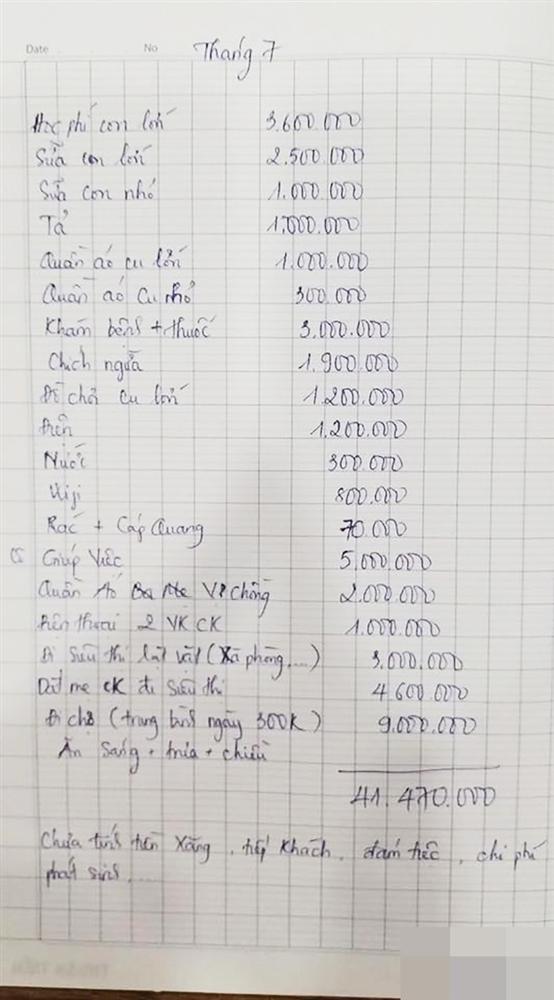 Date No Tháng 7
Học phí con lớn 3.600.000
Sữa con lớn 2.500.000
Sữa con nhỏ 1.000.000
Tả 1,000.000
Quần áo cu lớn 1.000.000
Quần áo cu nhỏ 300.000
Khám bệnh + thuốc 3.000.000
Chích ngừa 1.900.000
Đồ chơi cu lớn 1.200.000
Điện 1.200.000
Nước 300.000
800.000
Rác + Cáp Quang 70.000
Giúp Việc 5,000.000
Quần Áo Ba Mẹ Vợ chồng 2.000.000
Điện thoại 2 VK CK 1.000.000
Đi siêu thị lặt vặt (Xà phòng....) 3.000.000
Dắt mẹ CK đi siêu thị 4.600.000
Đi chợ (trung bình ngày 300K) 9.000.000
Ăn sáng + trưa + chiều
41.470.000
Chưa tính tiền xăng, tiếp khách, đám tiệc, chi phí
phát sinh....